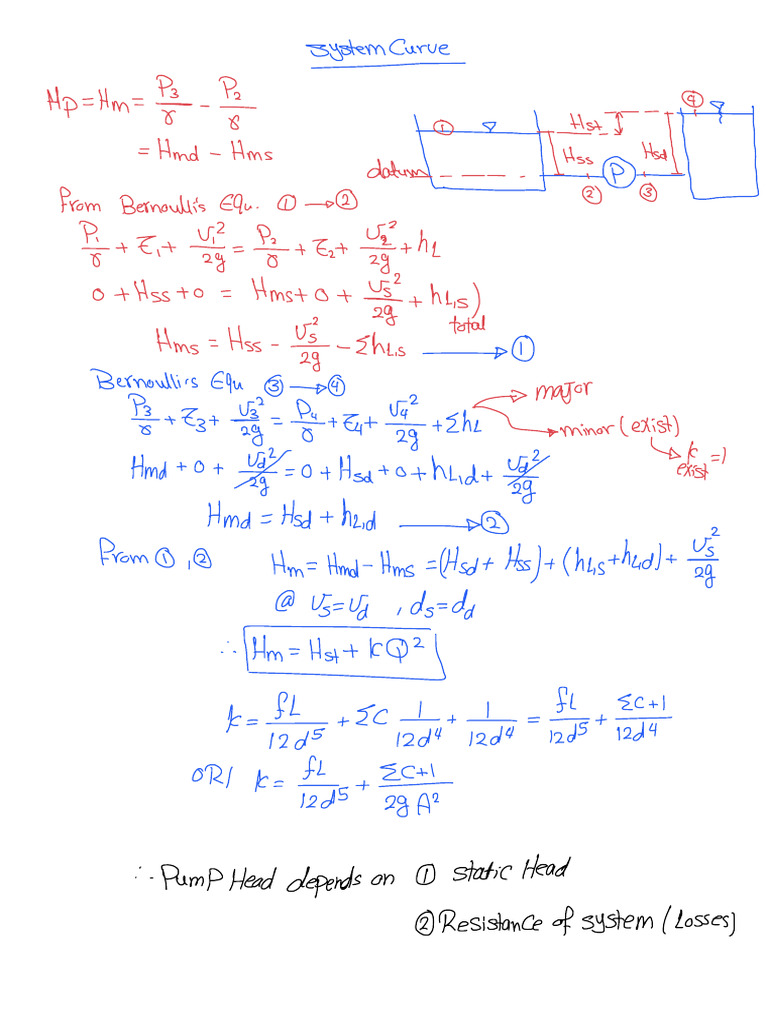 System Curve
Hp = Hm = P3/γ - P2/γ
= Hmd - Hms
① ④
Hst
Hss Hsd
datum P
② ③
From Bernoulli's Equ. ① → ②
P1/γ + Z1 + v1²/2g = P2/γ + Z2 + v2²/2g + hL
0 + Hss + 0 = Hms + 0 + vs²/2g + hL,s) total
Hms = Hss - vs²/2g - ΣhL,s → ①
Bernoulli's Equ ③ → ④
P3/γ + Z3 + v3²/2g = P4/γ + Z4 + v4²/2g + ΣhL
→ major
→ minor (exist)
→ k exist = 1
Hmd + 0 + vd²/2g = 0 + Hsd + 0 + hL,d + vd²/2g
Hmd = Hsd + hL,d → ②
From ①, ② Hm = Hmd - Hms = (Hsd + Hss) + (hL,s + hL,d) + vs²/2g
@ vs = vd , ds = dd
∴ Hm = Hst + kQ²
k = fL/12d⁵ + ΣC 1/12d⁴ + 1/12d⁴ = fL/12d⁵ + ΣC+1/12d⁴
OR/ k = fL/12d⁵ + ΣC+1/2gA²
∴ Pump Head depends on ① static Head
② Resistance of system (Losses)